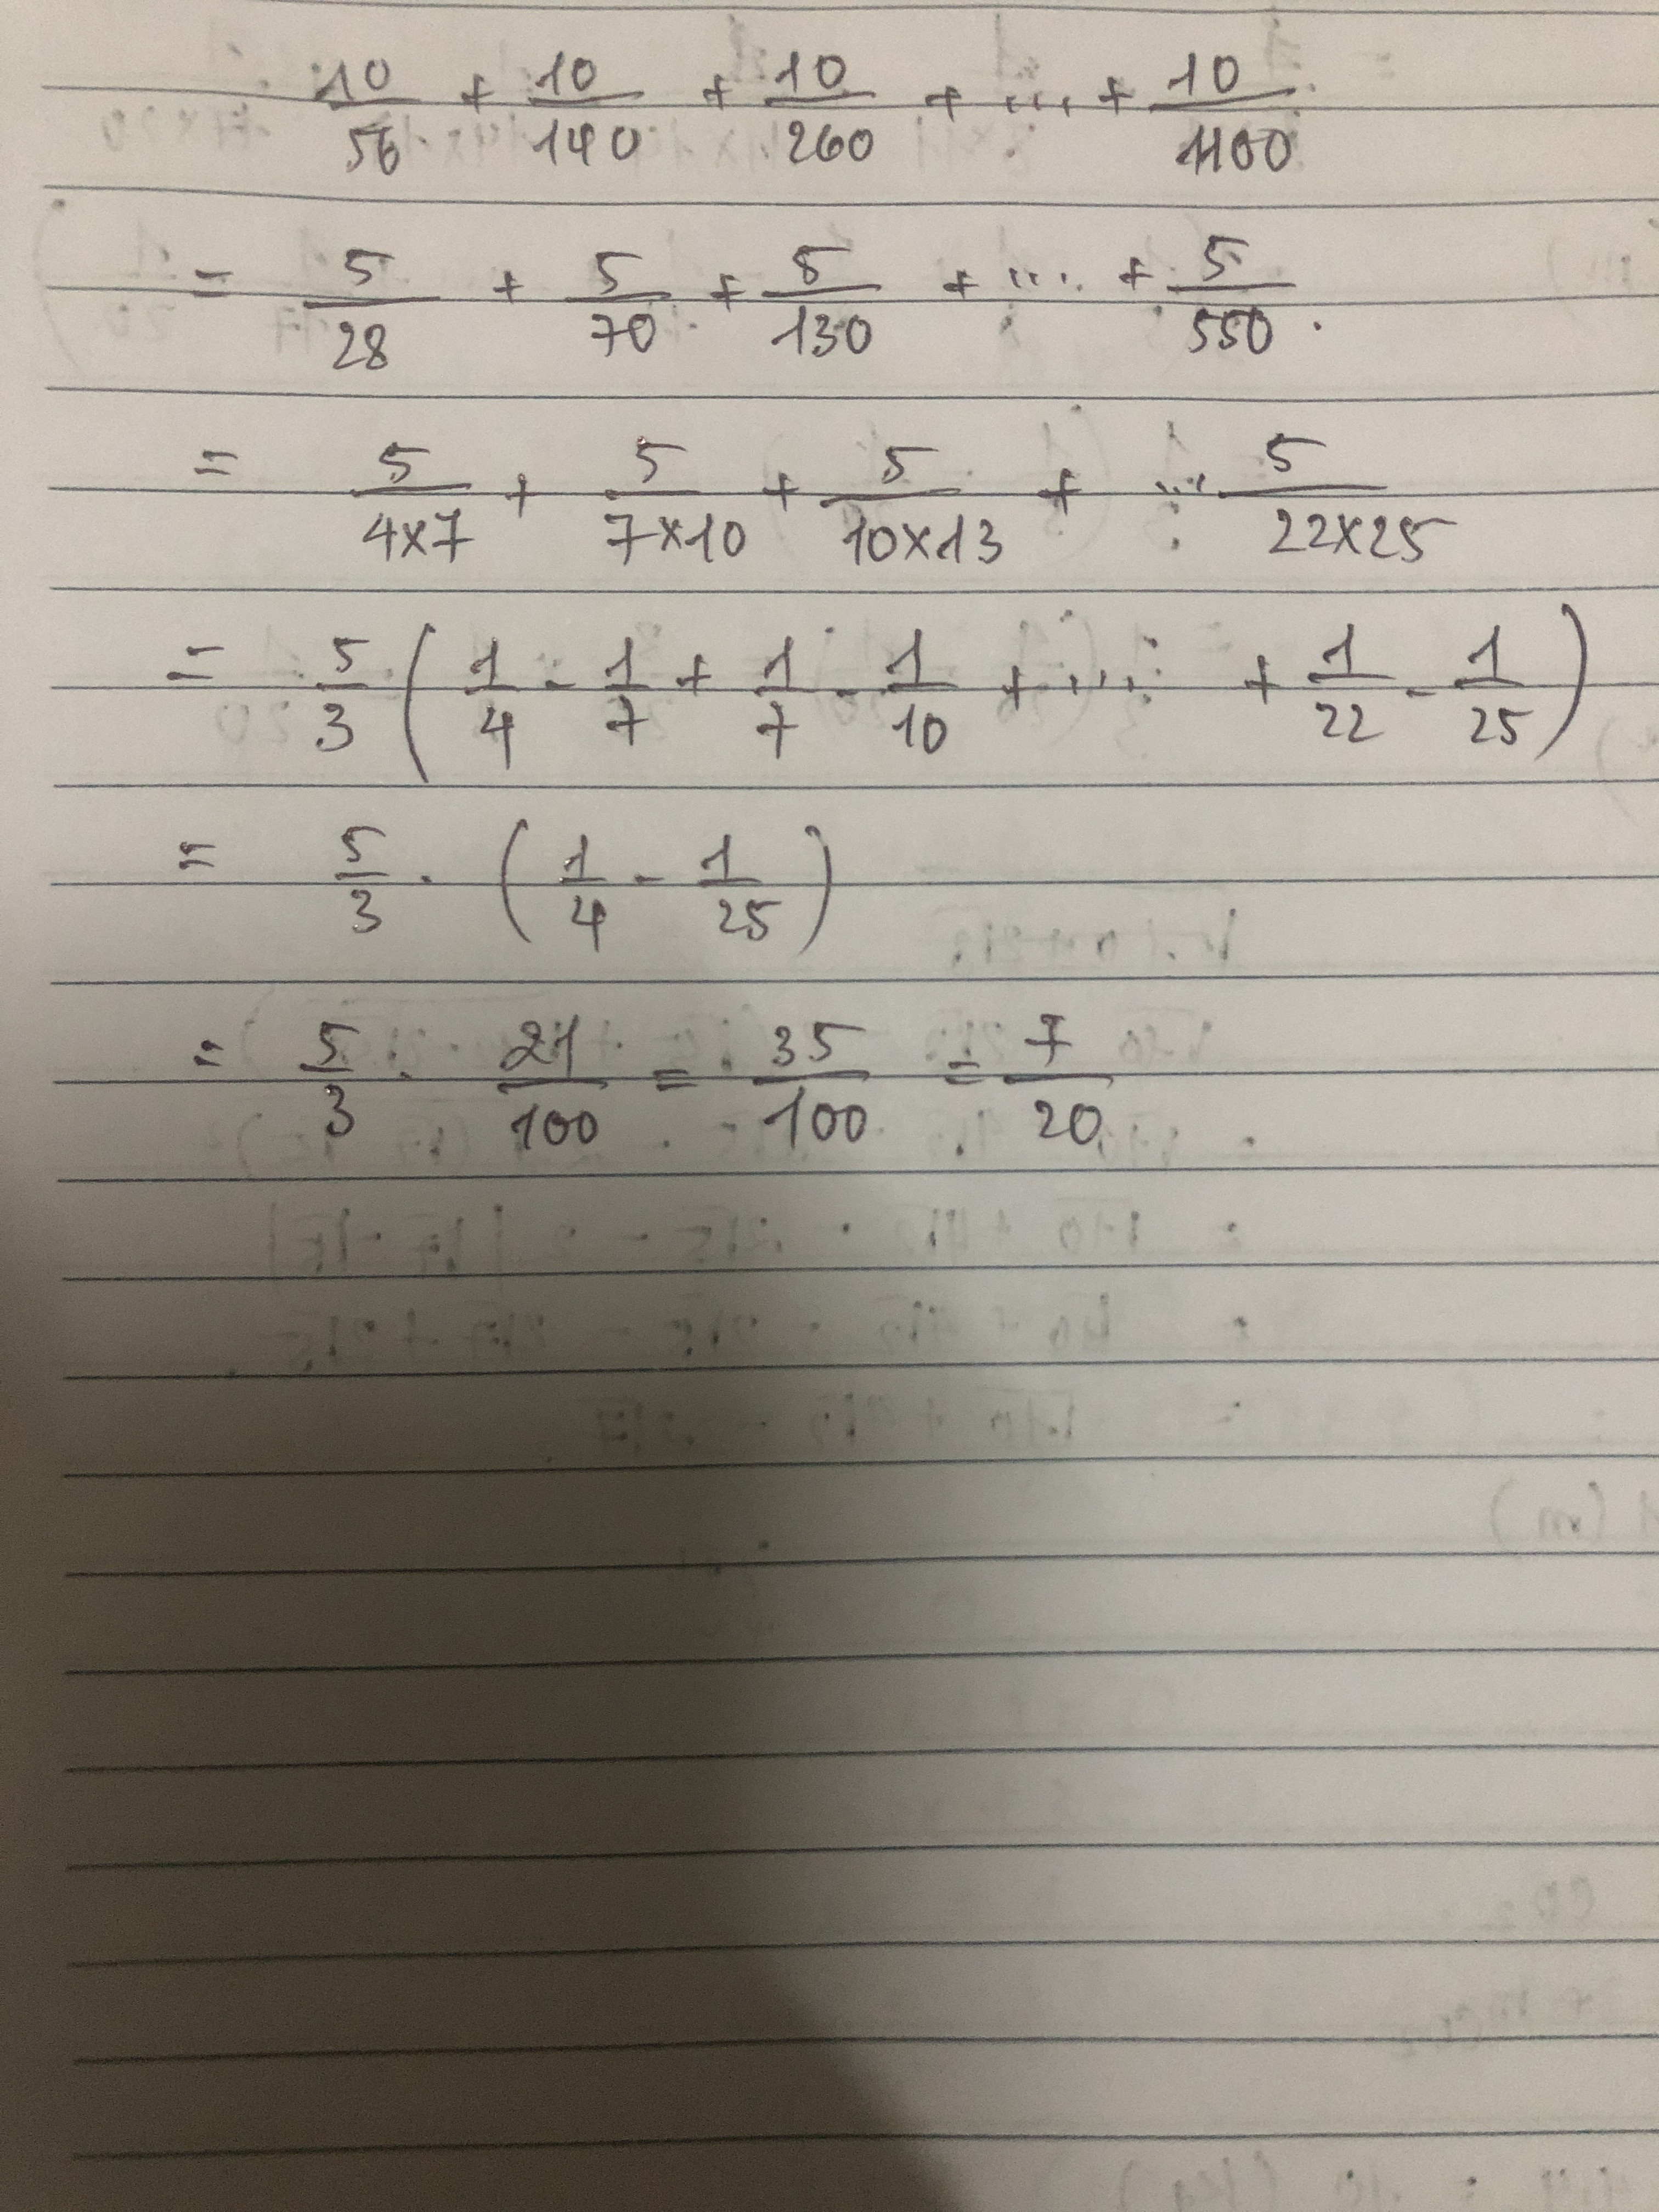 10/56 + 10/140 + 10/260 + ... + 10/1400
= 5/28 + 5/70 + 5/130 + .... + 5/550.
= 5/4×7 + 5/7×10 + 5/10×13 + ... 5/22×25
= 5/3 ( 1/4 - 1/7 + 1/7 - 1/10 + ... + 1/22 - 1/25 )
= 5/3 . ( 1/4 - 1/25 )
= 5/3 . 21/100 = 35/100 = 7/20